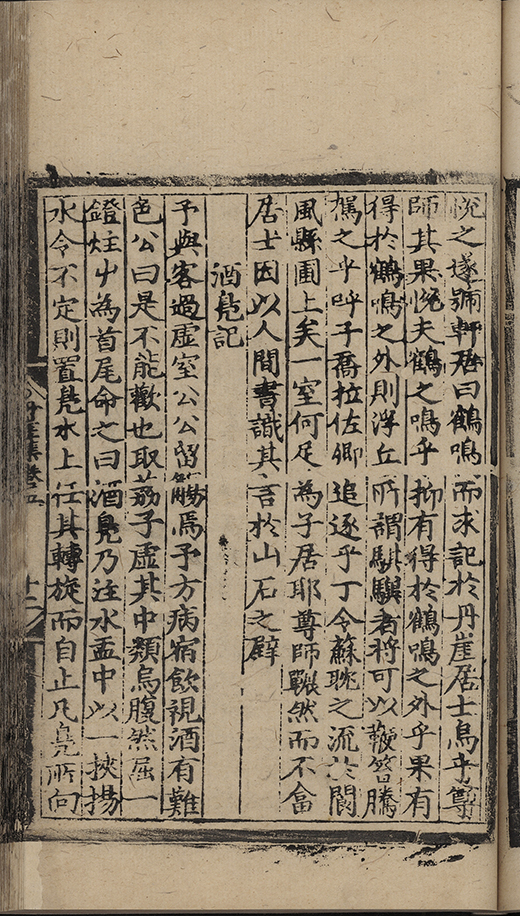 悅之遂號軒居曰鶴鳴而求記於丹崖居士烏乎尊
師其果悅夫鶴之鳴乎抑有得於鶴鳴之外乎果有
得於鶴鳴之外則浮丘所謂騏驥者將可以鞭笞騰
駕之乎呼子喬拉佐卿追逐乎丁令蘇耽之流於閬
風縣圃上矣一室何足為子居耶尊師囅然而不畣
居士因以人間書識其言於山石之壁
酒鳧記
予與客過虛室公公留觴焉予方病宿飲視酒有難
色公曰是不能歡也取荔子虛其中類烏腹然屈一
鐙炷屮為首尾命之曰酒鳧乃注水盂中以一挾揚
水令不定則置鳧水上任其轉旋而自止凡鳧所向